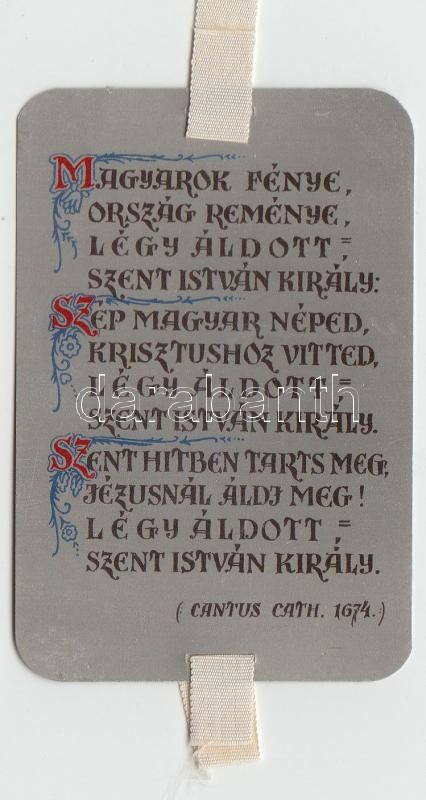 MAGYAROK FÉNYE,
ORSZÁG REMÉNYE,
LÉGY ÁLDOTT =
SZENT ISTVÁN KIRÁLY:
SZÉP MAGYAR NÉPED,
KRISZTUSHOZ VITTED,
LÉGY ÁLDOTT =
SZENT ISTVÁN KIRÁLY.
SZENT HITBEN TARTS MEG,
JÉZUSNÁL ÁLDJ MEG!
LÉGY ÁLDOTT =
SZENT ISTVÁN KIRÁLY.
(CANTUS CATH. 1674.)
darabanth